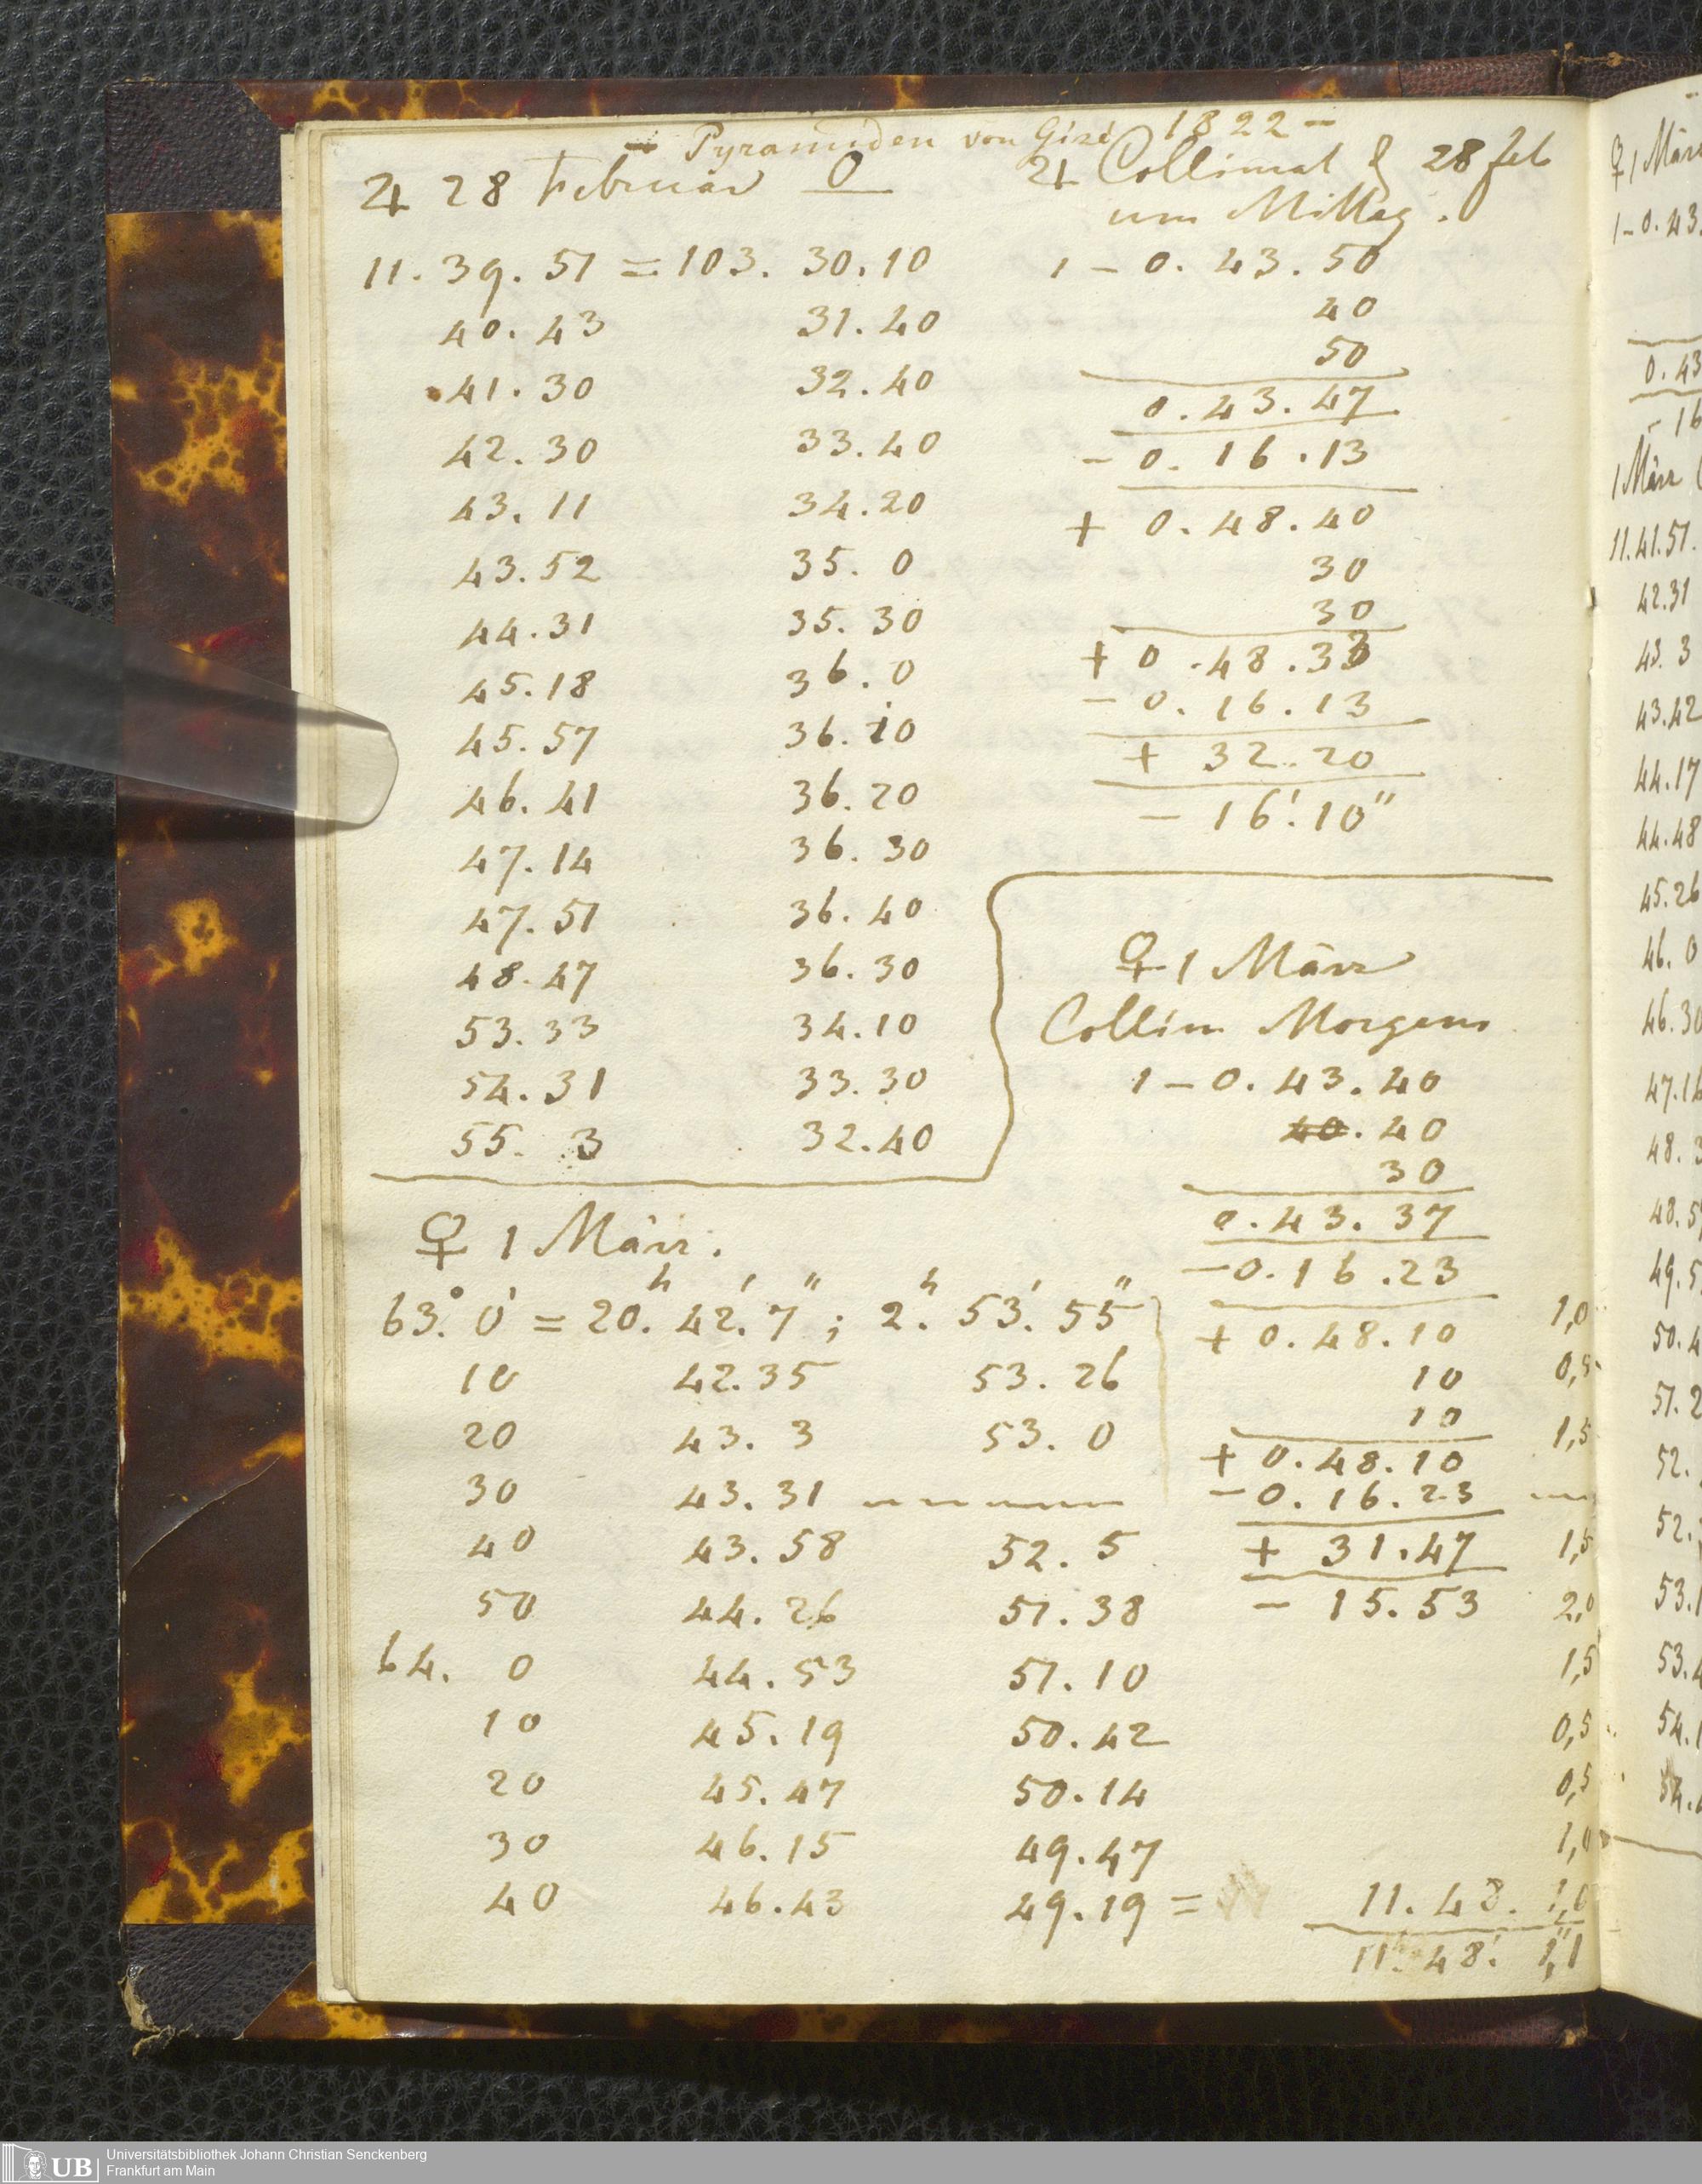 Pyramiden von Gizé 1822 –
♃ 28 Februar O
11. 39. 51 = 103. 30. 10
40. 43 31. 40
41. 30 32. 40
42. 30 33. 40
43. 11 34. 20
43. 52 35. 0
44. 31 35. 30
45. 18 36. 0
45. 57 36. 10
46. 41 36. 20
47. 14 36. 30
47. 51 36. 40
48. 47 36. 30
53. 33 34. 10
54. 31 33. 30
55. 3 32. 40
♃ Collimat 28 feb
um Mittag.
1 – 0. 43. 50
40
50
0. 43. 47
– 0. 16. 13
+ 0. 48. 40
30
30
+ 0. 48. 33
– 0. 16. 13
+ 32. 20
– 16'. 10"
♀ 1 März
Collim Morgens
1 – 0. 43. 40
40. 40
30
0. 43. 37
– 0. 16. 23
+ 0. 48. 10
10
10
+ 0. 48. 10
– 0. 16. 23
+ 31. 47
– 15. 53
♀ 1 März.
63.° 0' = 20.h 42.' 7" ; 2.h 53.' 55" 1,0
10 42. 35 53. 26 0,5
20 43. 3 53. 0 1,5
30 43. 31
40 43. 58 52. 5 1,5
50 44. 26 51. 38 2,0
64. 0 44. 53 51. 10 1,5
10 45. 19 50. 42 0,5
20 45. 47 50. 14 0,5
30 46. 15 49. 47 1,0
40 46. 43 49. 19 = 11. 48. 1,0
11. 48.' 1",1
♀ 1 März
1 – 0. 43.
0. 43
– 16
1 März
11. 41. 51.
42. 31
43. 3
43. 42
44. 17
44. 48
45. 26
46. 0
46. 30
47. 14
48. 3
48. 5
49. 5
50. 4
51. 2
52.
52.
53. 1
53. 4
54. 1
54.
UB Universitätsbibliothek Johann Christian Senckenberg
Frankfurt am Main